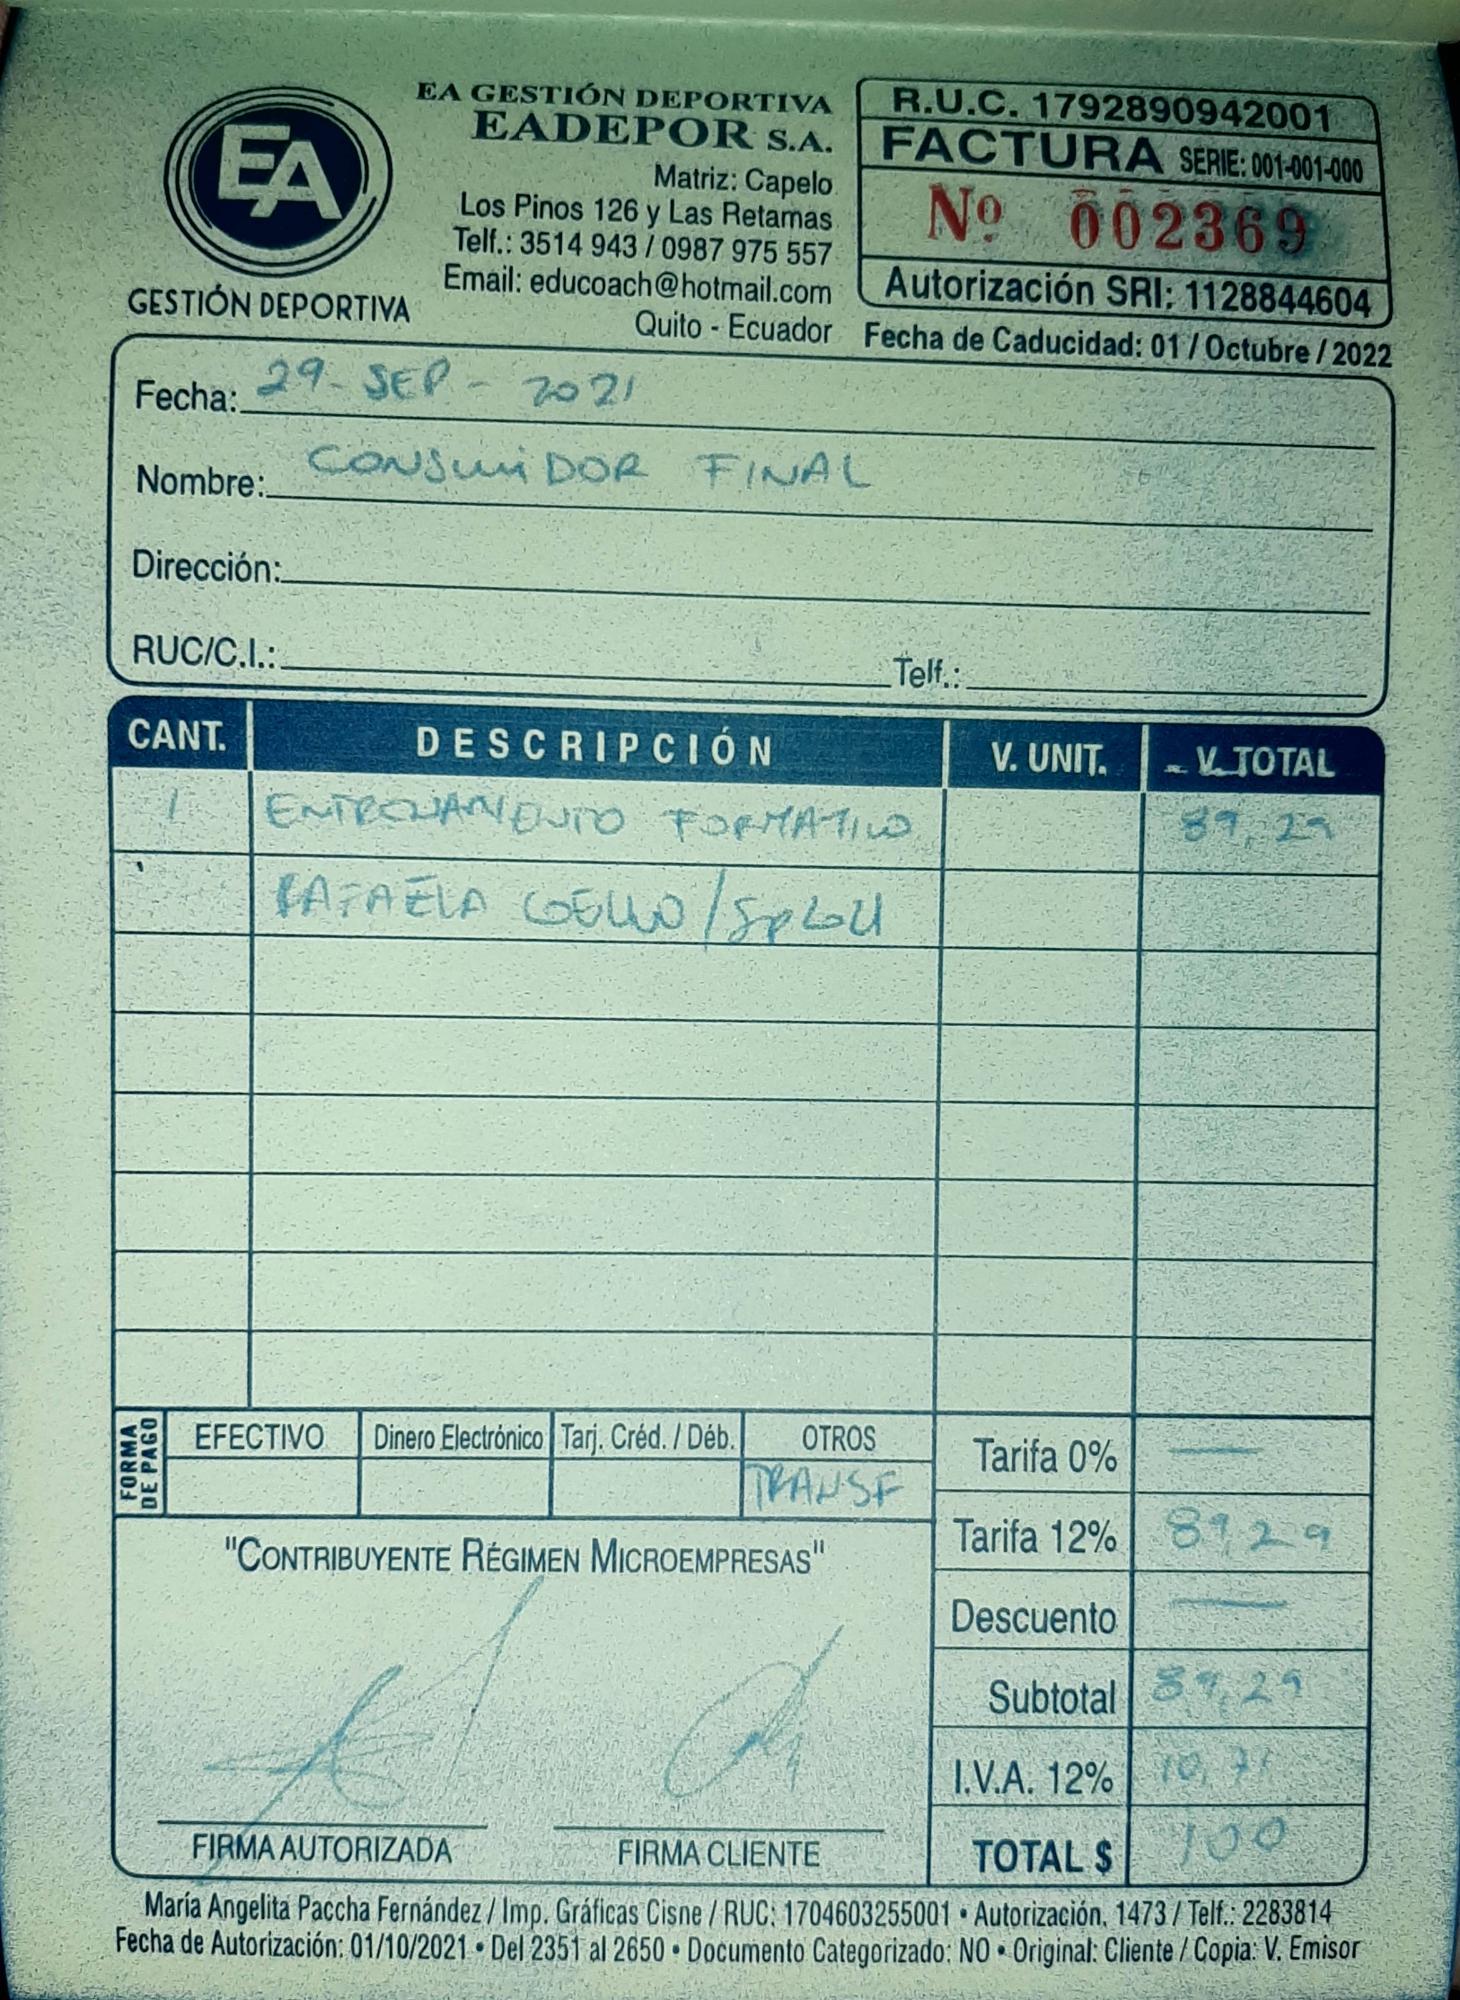 EA
GESTIÓN DEPORTIVA
EA GESTIÓN DEPORTIVA
EADEPOR S.A.
Matriz: Capelo
Los Pinos 126 y Las Retamas
Telf.: 3514 943 / 0987 975 557
Email: educoach@hotmail.com
Quito - Ecuador
R.U.C. 1792890942001
FACTURA SERIE: 001-001-000
Nº 002369
Autorización SRI: 1128844604
Fecha de Caducidad: 01 / Octubre / 2022
Fecha: 29 - SEP - 2021
Nombre: CONSUMIDOR FINAL
Dirección:
RUC/C.I.: Telf.:
CANT. DESCRIPCIÓN V. UNIT. V. TOTAL
1 ENTRENAMIENTO FORMATIVO 89,29
RAFAELA COELLO /
FORMA DE PAGO
EFECTIVO Dinero Electrónico Tarj. Créd. / Déb. OTROS
TRANSF
Tarifa 0% —
Tarifa 12% 89,29
Descuento —
Subtotal 89,29
I.V.A. 12% 10,71
TOTAL $ 100
"CONTRIBUYENTE RÉGIMEN MICROEMPRESAS"
FIRMA AUTORIZADA FIRMA CLIENTE
María Angelita Paccha Fernández / Imp. Gráficas Cisne / RUC: 1704603255001 • Autorización. 1473 / Telf.: 2283814
Fecha de Autorización: 01/10/2021 • Del 2351 al 2650 • Documento Categorizado: NO • Original: Cliente / Copia: V. Emisor